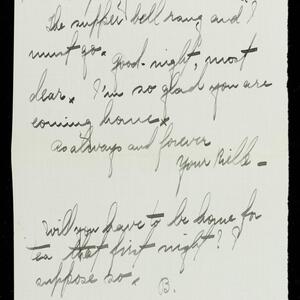 The supper bell rang and I
must go. Good-night, most
dear. I'm so glad you are
coming home.
As always and forever
Your Bille -
Will you have to be home for
tea that first night? I
suppose so. B.